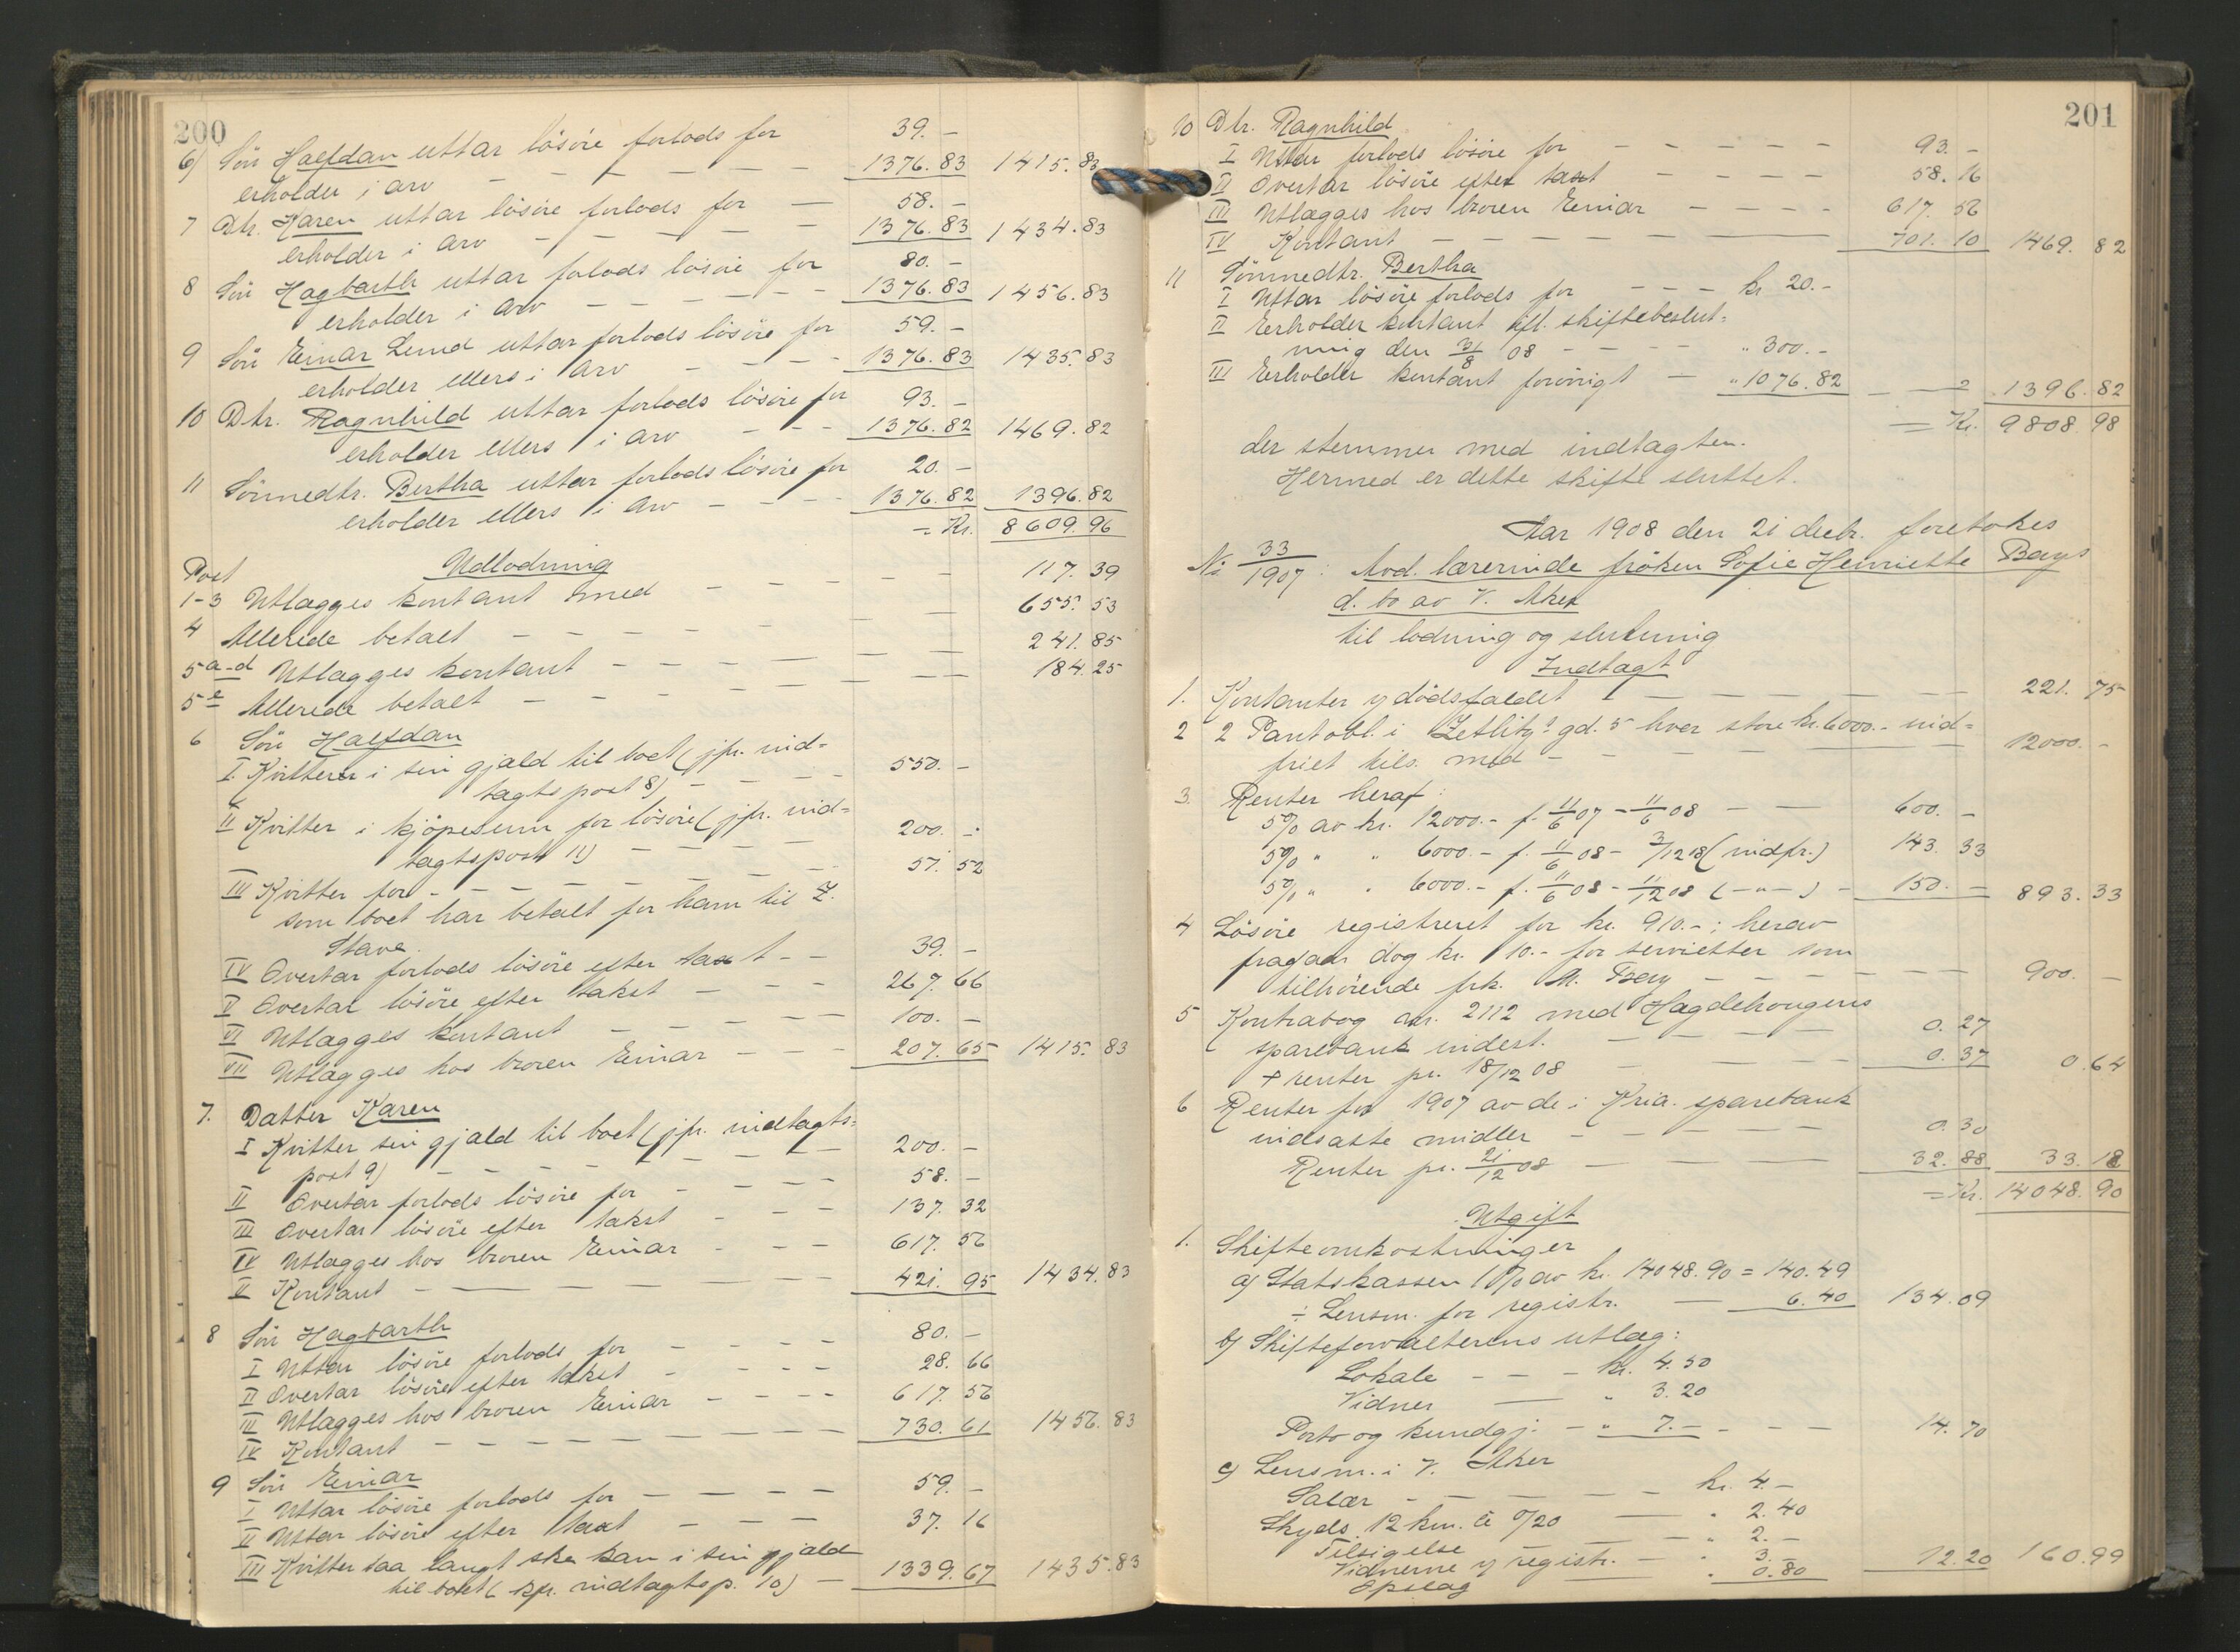 200
6) Sön Halfdan uttar lösöre forlods for 39.-
erholder i arv - - - - - - 1376.83 1415.83
7 Dtr. Karen uttar lösöre forlods for - 58.-
erholder i arv - - - - - 1376.83 1434.83
8 Sön Hagbarth uttar forlods lösöre for 80.-
erholder i arv - - - - - 1376.83 1456.83
9 Sön Einar Lund uttar forlods lösöre for 59.-
erholder ellers i arv - - - 1376.83 1435.83
10 Dtr. Ragnhild uttar forlods lösöre for 93.-
erholder ellers i arv - - - 1376.82 1469.82
11 Sönnedtr. Bertha uttar forlods lösöre for 20.-
erholder ellers i arv - - - 1376.82 1396.82
= Kr. 8609.96
Post Udlodning
1-3 Utlægges kontant med - - - - - 117.39
4 Allerede betalt - - - - - - 655.53
5 a-d Utlægges kontant - - - - - - 241.85
5 e Allerede betalt - - - - - - 184.25
6 Sön Halfdan
I. Kvitterer i sin gjæld til boet (jfr. ind=
tagtspost 8) - - - - 550.-
II Kvitter i kjöpesum for lösöre (jfr. ind=
tagtspost 11) - - - - 200.-
III Kvitter for - - - - - - 57.52
som boet har betalt for ham til Z.
Stave.
IV Overtar forlods lösöre efter taxt - - 39.-
V Overtar lösöre efter takst - - - 267.66
VI Utlægges kontant - - - - - 100.-
VII Utlægges hos broren Einar - - - 207.65 1415.83
7. Datter Karen
I Kvitter sin gjæld til boet (jfr. indtagts=
post 9) - - - - - - 200.-
II Overtar forlods lösöre for - - - - 58.-
III Overtar lösöre efter takst - - - 137.32
IV Utlægges hos broren Einar - - - 617.56
V Kontant - - - - - 421.95 1434.83
8 Sön Hagbarth
I Uttar lösöre forlods for - - - - 80.-
II Overtar lösöre efter takst - - - - 28.66
III Utlægges hos broren Einar - - - - 617.56
IV Kontant - - - - - - - 730.61 1456.83
9 Sön Einar
I Uttar lösöre forlods for - - - - 59.-
II Uttar lösöre efter taxt - - - 37.16
III Kvitter saa langt ske kan i sin gjæld
til boet (kfr. indtagtsp. 10) - 1339.67 1435.83
201
10 Dtr. Ragnhild
I Uttar forlods lösöre for - - - - - 93.-
II Overtar lösöre efter taxt - - - - 58.16
III Utlægges hos broren Einar - - - - 617.56
IV Kontant - - - - - - 701.10 1469.82
11 Sönnedtr. Bertha
I Uttar lösöre forlods for - - - kr 20.-
II Erholder kontant ifl. skiftebeslut=
ning den 31/8 08 - - - - " 300.-
III Erholder kontant forövrigt - " 1076.82 - - 1396.82
= Kr. 9808.98
der stemmer med indtægten.
Hermed er dette skifte sluttet.
Aar 1908 den 21 decbr. foretokes
No 33/1907: Avd. lærerinde fröken Sofie Henriette Bergs
d. bo av V. Aker
til lodning og slutning
Indtægt
1. Kontanter v dödsfaldet - - - - - 221.75
2 2 Pantobl. i Zetlitzs gd. 5 hver store kr. 6000.- ind=
friet tils. med - - - - - 12000.-
3. Renter heraf:
5% av kr. 12000.- f. 11/6 07 - 11/6 08 - - 600.-
5% " " 6000.- f. 11/6 08 - 3/12 08 (indfr.) 143.33
5% " " 6000.- f. 11/6 08 - 11/12 08 (-"-) - 150.- 893.33
4 Lösöre registreret for kr. 910.-; herav
fragaar dog kr. 10.- for servietter som
tilhörende frk. M. Berg - - - - - - 900.-
5 Kontrabog nr. 2112 med Hagdehougens
sparebank indest. - - - - 0.27
+ renter pr. 18/12 08 - - - - 0.37 0.64
6 Renter for 1907 av de i Kria. sparebank
indsatte midler - - - - - 0.30
Renter pr. 21/12 08 - - - 32.88 33.18
= Kr. 14048.90
Utgift
1. Skifteomkostninger
a) Statskassen 1% av kr. 14048.90 = 140.49
÷ Lensm. for registr. - 6.40 134.09
b) Skifteforvalterens utlæg:
Lokale - - - kr. 4.50
Vidner - " 3.20
Porto og kundgj. - " 7.- - - - 14.70
c) Lensm. i V. Aker
Salær - - - - - kr. 4.-
Skyds 12 km. à 0/20 - " 2.40
Tilsigelse - " 2.-
Vidnerne v registr. - " 3.-
Opslag - " 0.80 12.20 160.99